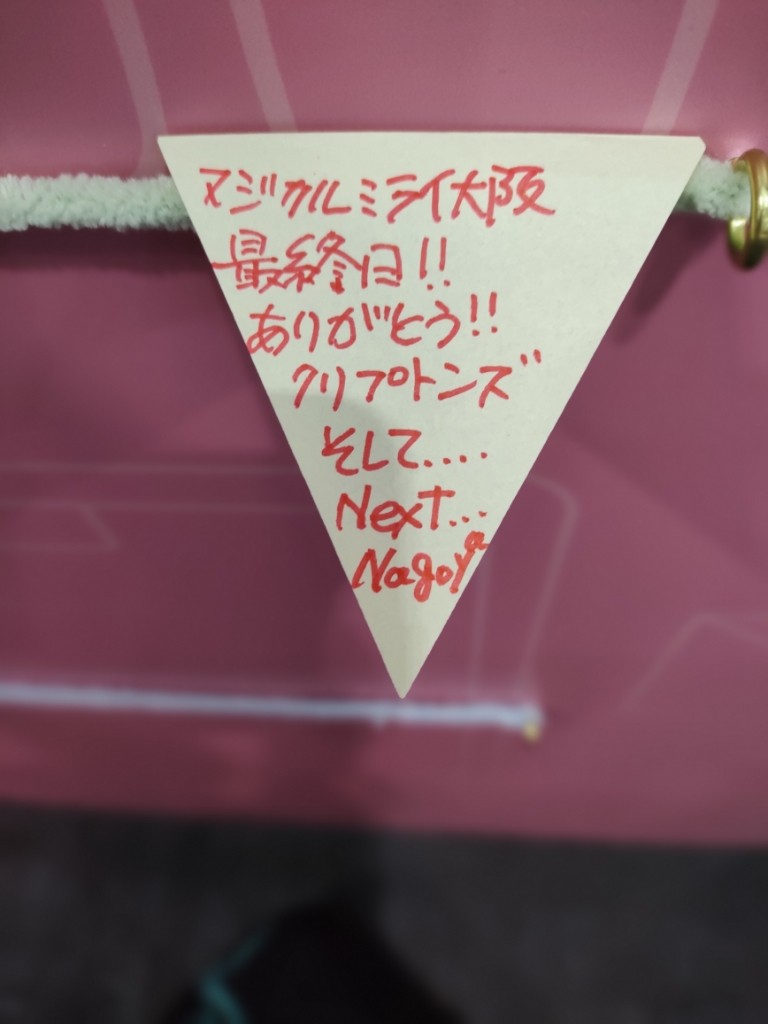 マジカルミライ大阪
最終日!!
ありがとう!!
クリプトンズ
そして....
Next...
Nagoya